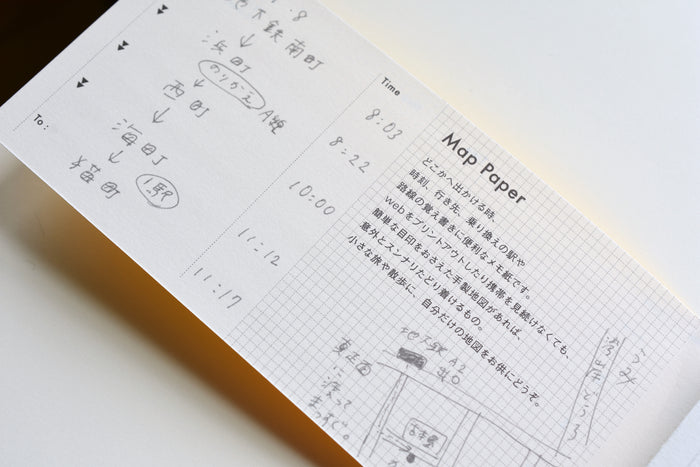 地下鉄南町
↓
浜町
のりかえ
↓
西町 A線
↓
海町
↓
猫町 駅
To:
Time
8:03
8:22
10:00
11:12
11:17
Map Paper
どこかへ出かける時、
時刻、行き先、乗り換えの駅や
路線の覚え書きに便利なメモ紙です。
webをプリントアウトしたり携帯を見続けなくても、
簡単な目印をおさえた手製地図があれば、
意外とスンナリたどり着けるもの。
小さな旅や散歩に、自分だけの地図をお供にどうぞ。
地下鉄 A2
出口
真正面
に渡って
まっすぐ。
古本屋
うみ